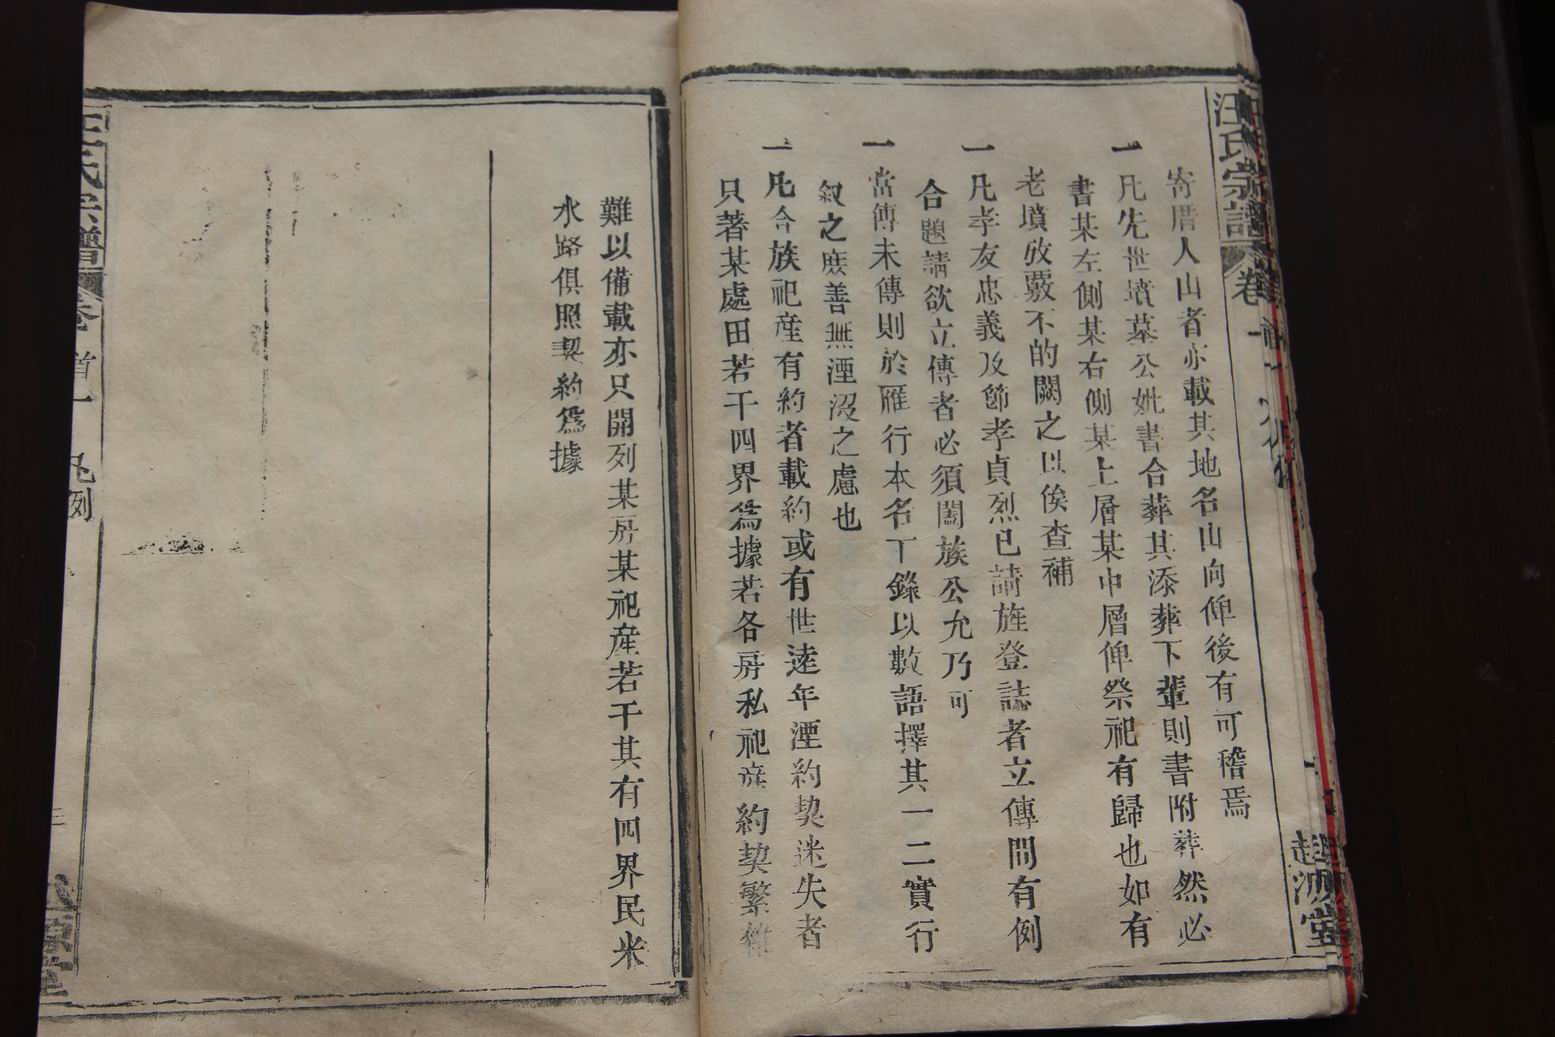 汪氏宗譜 卷
寄厝人山者亦載其地名山向俾後有可稽焉
一凡先世墳墓公妣書合葬其添葬下輩則書附葬然必
書某左側某右側某上層某中層俾祭祀有歸也如有
老墳攷覈不的闕之以俟查補
一凡孝友忠義及節孝貞烈已請旌登誌者立傳間有例
合題請欲立傳者必須闔族公允乃可
一當傳未傳則於雁行本名下錄以數語擇其一二實行
叙之庶善無湮沒之慮也
一凡合族祀產有約者載約或有世遠年湮約契迷失者
只著某處田若干四界為據若各房私祀產約契繁雜
難以備載亦只開列某房某祀產若干其有四界民米
水路俱照契約為據
汪氏宗譜 卷首一 凡例